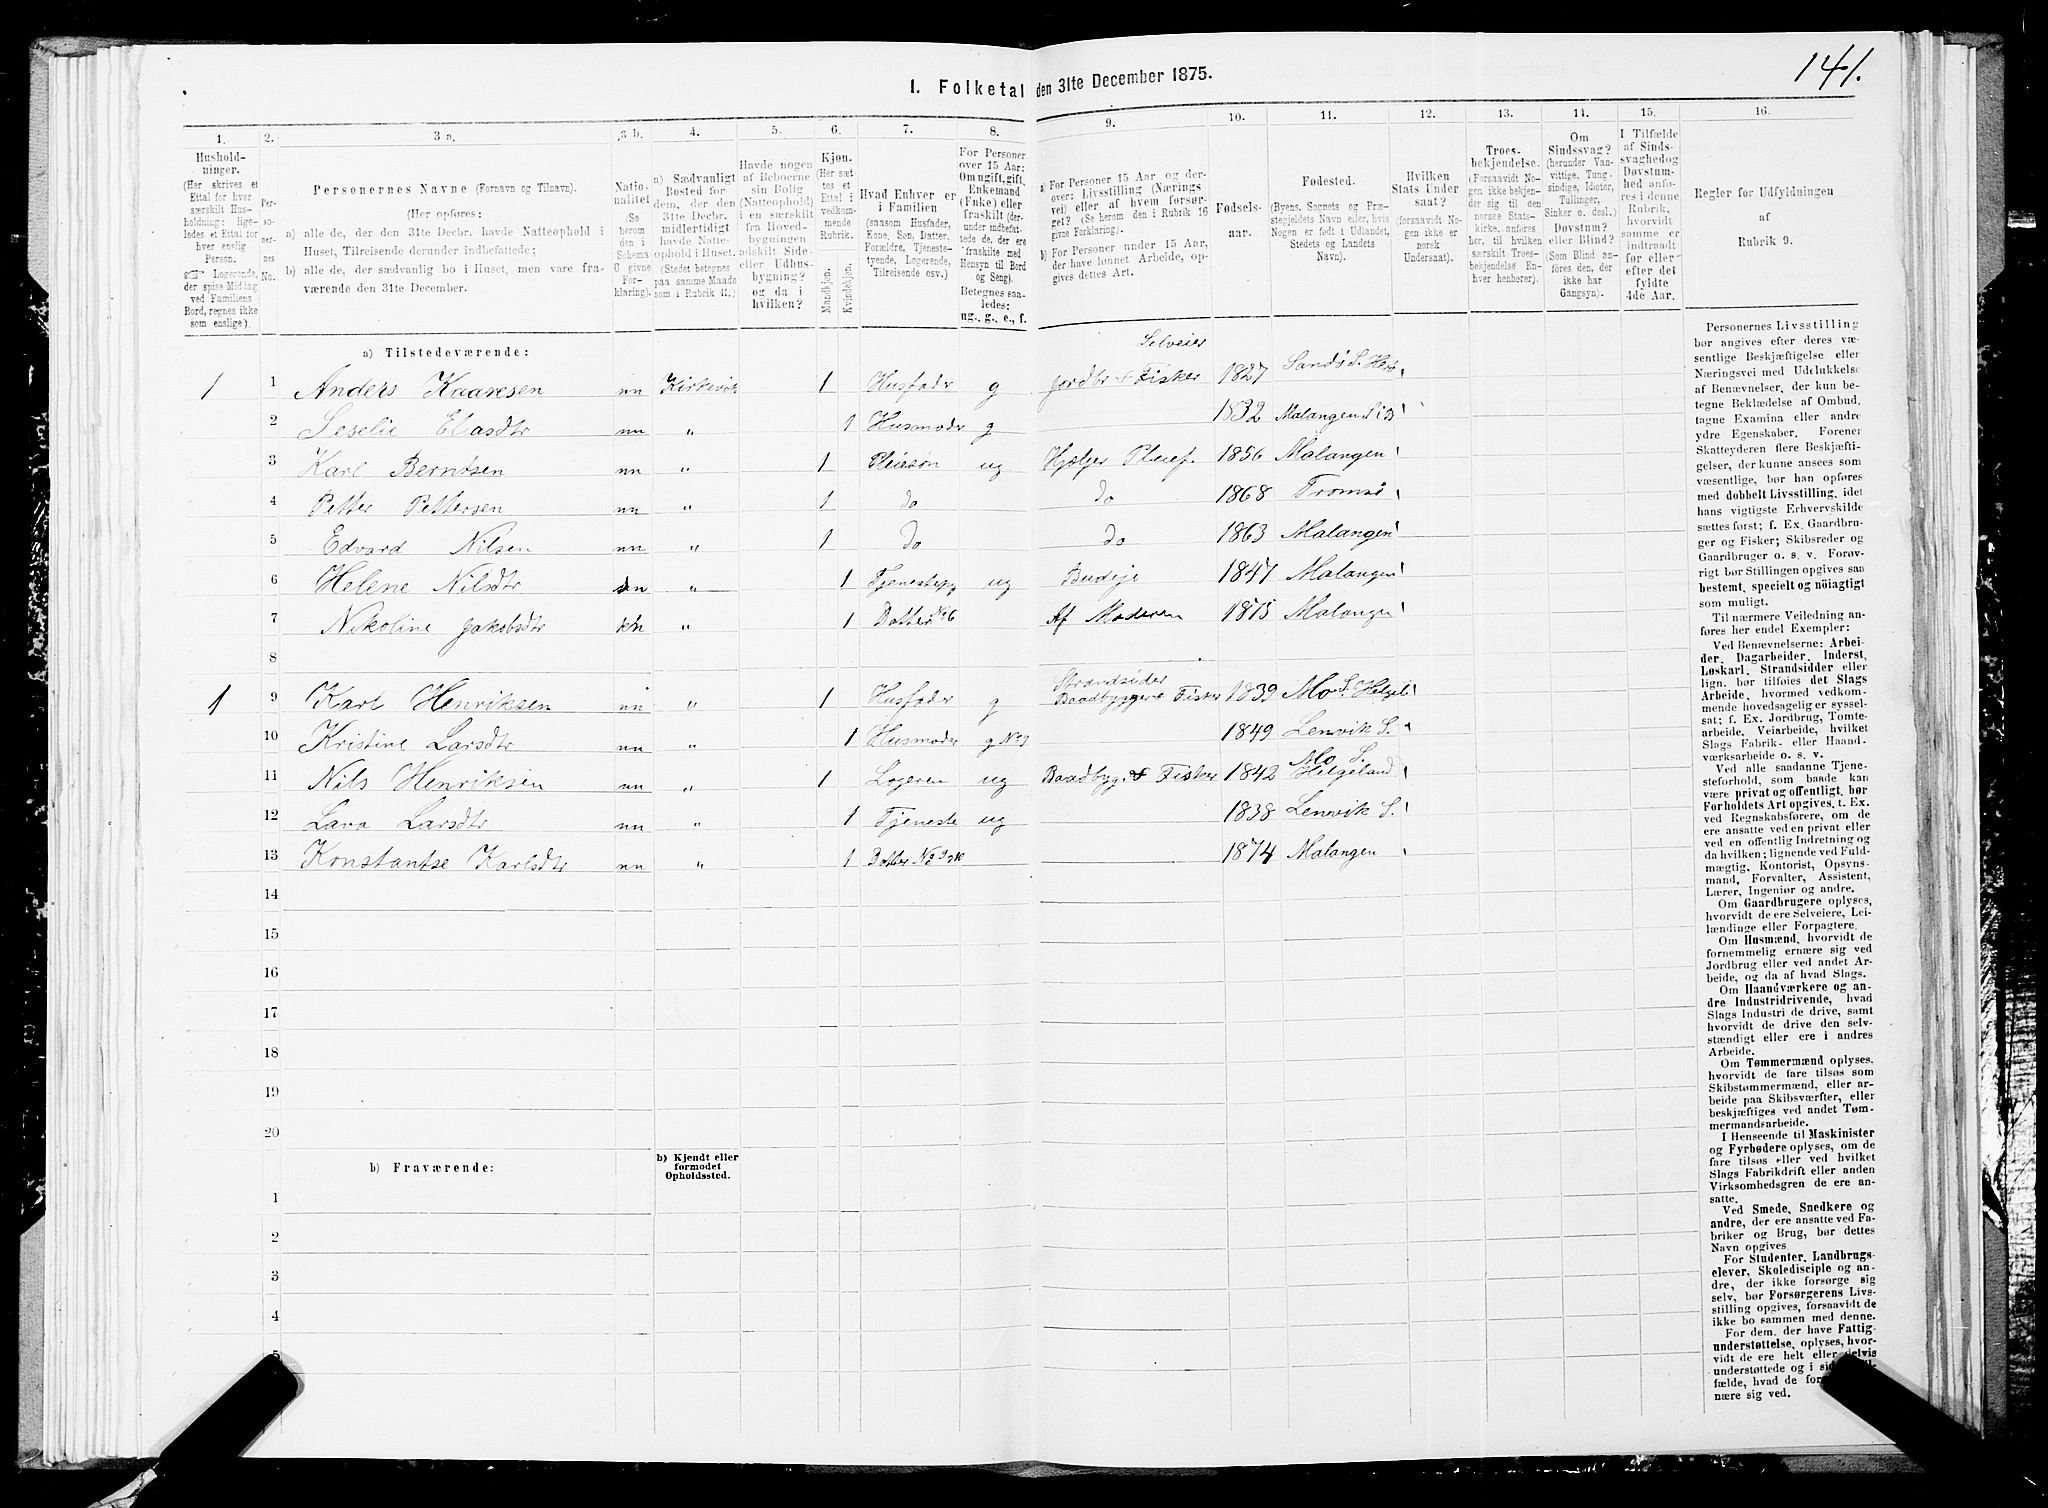 141.
I. Folketal den 31te December 1875.
1. 2. 3 a. 3 b. 4. 5. 6. 7. 8. 9. 10. 11. 12. 13. 14. 15. 16.
Hushold-
ninger.
(Her skrives et
Ettal for hver
særskilt Hus-
holdning; lige-
ledes et Ettal for
hver enslig
Person.
☞ Logerende,
der spise Middag
ved Familiens
Bord, regnes ikke
som enslige).
Per-
so-
ner-
nes
No.
Personernes Navne (Fornavn og Tilnavn).
(Her opføres:
a) alle de, der den 31te Decbr. havde Natteophold i
Huset, Tilreisende derunder indbefattede;
b) alle de, der sædvanlig bo i Huset, men vare fra-
værende den 31te December.
Natio-
nalitet
(Se
herom
den i
Schema
C givne
For-
klaring).
a) Sædvanligt
Bosted for
dem, der den
31te Decbr.
midlertidigt
havde Natte-
ophold i Huset.
(Stedet betegnes
paa samme Maade
som i Rubrik 11.)
Havde nogen
af Beboerne
sin Bolig
(Natteophold)
i en særskilt
fra Hoved-
bygningen
adskilt Side-
eller Udhus-
bygning?
og da i
hvilken?
Kjøn.
(Her sæt-
tes et
Ettal i
vedkom-
mende
Rubrik.
Mandkjøn.
Kvindekjøn.
Hvad Enhver er
i Familien
(saasom Husfader,
Kone, Søn, Datter,
Forældre, Tjeneste-
tyende, Logerende,
Tilreisende osv.)
For Personer
over 15 Aar:
Om ugift, gift,
Enkemand
(Enke) eller
fraskilt (der-
under indbefat-
tede de, der ere
fraskilte med
Hensyn til Bord
og Seng).
Betegnes saa-
ledes:
ug., g., e., f.
a) For Personer 15 Aar og der-
over: Livsstilling (Nærings
vei) eller af hvem forsør-
get? (Se herom den i Rubrik 16
givne Forklaring).
b) For Personer under 15 Aar,
der have lønnet Arbeide, op-
gives dettes Art.
Fødsels-
aar.
Fødested.
(Byens, Sognets og Præ-
stegjeldets Navn eller, hvis
Nogen er født i Udlandet,
Stedets og Landets
Navn).
Hvilken
Stats Under
saat?
(forsaavidt No-
gen ikke er
norsk
Undersaat).
Troes-
bekjendelse.
(Forsaavidt No-
gen ikke bekjen-
der sig til den
norske Stats-
kirke, anføres
her, til hvilken
særskilt Troes-
bekjendelse En-
hver henhører).
Om
Sindssvag?
(herunder Van-
vittige, Tung-
sindige, Idioter,
Tullinger,
Sinker o. desl.)
Døvstum?
eller Blind?
(Som Blind an-
føres den, der
ikke har
Gangsyn).
I Tilfælde
af Sinds-
svaghed og
Døvstum-
hed anfø-
res i denne
Rubrik,
hvorvidt
samme er
indtraadt
før eller
efter det
fyldte
4de Aar.
Regler for Udfyldningen
af
Rubrik 9.
a) Tilstedeværende:
1 1 Anders Kaaresen nn Kirkevik 1 Husfadr g Selveier jordbr & Fisker 1827 Sandø S. Herø
2 Seselie Eliasdtr nn „ 1 Husmodr g 1832 Malangen
3 Karl Berntsen nn „ 1 Pleiesøn ug Hjælper Pleief. 1856 Malangen
4 Petter Pettersen nn „ 1 do do 1868 Tromsø
5 Edvard Nilsen nn „ 1 do do 1863 Malangen
6 Helene Nilsdtr nn „ 1 Tjenestepg ug Budeje 1847 Malangen
7 Nikoline Jakobsdtr kn „ 1 Datter No 6 Af Moderen 1875 Malangen
8
1 9 Karl Henriksen nn „ 1 Husfadr g Strandsider Baadbyggere Fisker 1839 Mo S. Helgel
10 Kristine Larsdtr nn „ 1 Husmoder g No 9 1849 Lenvik S.
11 Nils Henriksen nn „ 1 Logeren ug Baadbyg. & Fisker 1842 Mo S. Helgeland
12 Lava Larsdtr nn „ 1 Tjeneste ug 1838 Lenvik S.
13 Konstantse Karlsdtr nn „ 1 Datter No 9 & 10 1874 Malangen
14
15
16
17
18
19
20
b) Fraværende:
b) Kjendt eller
formodet
Opholdssted.
1
2
3
4
5
Personernes Livsstilling
bør angives efter deres væ-
sentlige Beskjæftigelse eller
Næringsvei med Udelukkelse
af Benævnelser, der kun be-
tegne Beklædelse af Ombud,
tagne Examina eller andre
ydre Egenskaber. Forener
Skatteyderen flere Beskjæfti-
gelser, der kunne ansees som
væsentlige, bør han opføres
med dobbelt Livsstilling, idet
hans vigtigste Erhvervskilde
sættes først; f. Ex. Gaardbru-
ger og Fisker; Skibsreder og
Gaardbruger o. s. v. Forøv-
rigt bør Stillingen opgives saa
bestemt, specielt og nøiagtigt
som muligt.
Til nærmere Veiledning an-
føres her endel Exempler:
Ved Benævnelserne: Arbei-
der, Dagarbeider, Inderst,
Løskarl, Strandsidder eller
lign. bør tilføies det Slags
Arbeide, hvormed vedkom-
mende hovedsagelig er syssel-
sat; f. Ex. Jordbrug, Tomte-
arbeide, Veiarbeide, hvilket
Slags Fabrik- eller Haand-
værksarbeide o. s. v.
Ved alle saadanne Tjene-
steforhold, som baade kan
være privat og offentligt, bør
Forholdets Art opgives, t. Ex.
ved Regnskabsførere, om de
ere ansatte ved en privat eller
ved en offentlig Indretning og
da hvilken; lignende ved Fuld-
mægtig, Kontorist, Opsyns-
mand, Forvalter, Assistent,
Lærer, Ingeniør og andre.
Om Gaardbrugere oplyses,
hvorvidt de ere Selveiere, Lei-
lændinge eller Forpagtere.
Om Husmænd, hvorvidt de
fornemmelig ernære sig ved
Jordbrug eller ved andet Ar-
beide, og da af hvad Slags.
Om Haandværkere og an-
dre Industridrivende, hvad
Slags Industri de drive, samt
hvorvidt de drive den selv-
stændigt eller ere i andres
Arbeide.
Om Tømmermænd oplyses,
hvorvidt de fare tilsøs som
Skibstømmermænd, eller ar-
beide paa Skibsværfter, eller
beskjæftiges ved andet Tøm-
mermandsarbeide.
I Henseende til Maskinister
og Fyrbødere oplyses, om de
fare tilsøs eller ved hvilket
Slags Fabrikdrift eller anden
Virksomhedsgren de ere an-
satte.
Ved Smede, Snedkere og
andre, der ere ansatte ved Fa-
briker og Brug, bør dettes
Navn opgives
For Studenter, Landbrugs-
elever, Skoledisciple og an-
dre, der ikke forsørge sig
selv, bør Forsørgerens Livs-
stilling opgives, forsaavidt de
ikke bo sammen med denne.
For dem, der have Fattig-
understøttelse, oplyses, hvor-
vidt de ere helt eller delvis
understøttede og i
fælde, hvad de
nære sig ved.